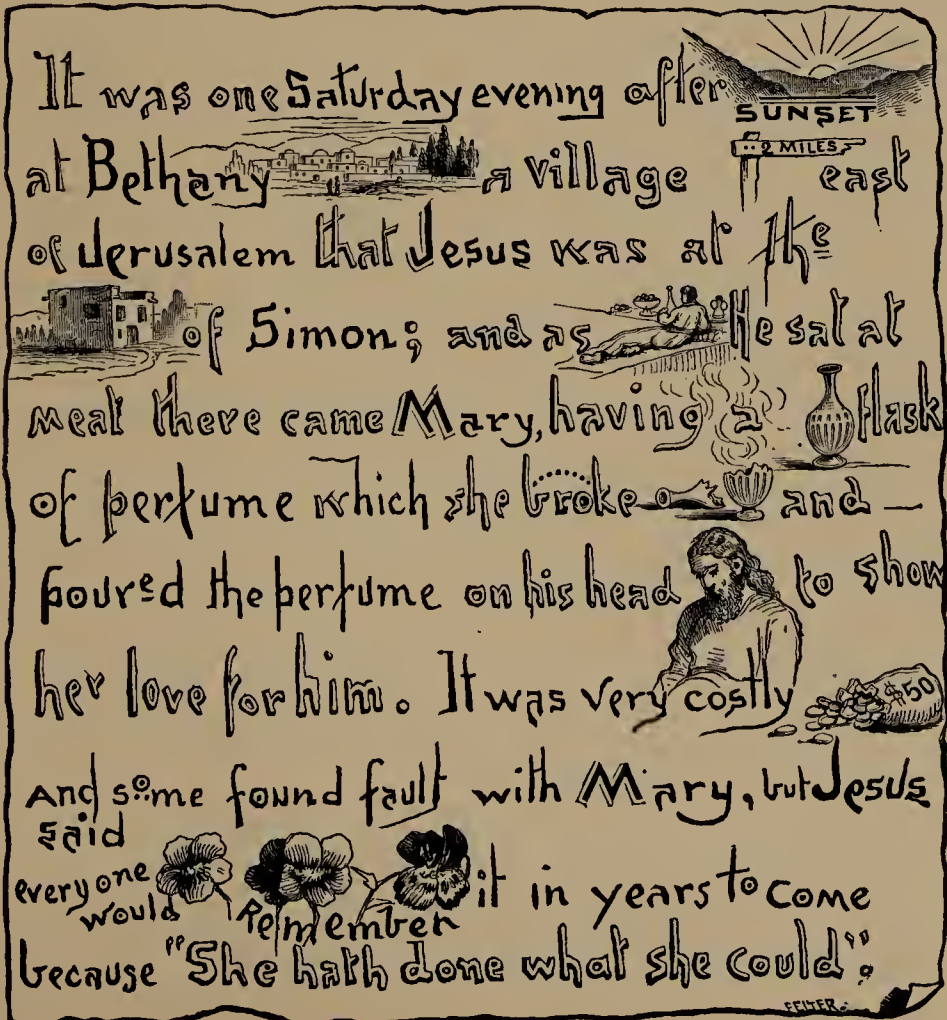 It was one Saturday evening after
SUNSET
at Bethany a village 2 MILES east
of Jerusalem that Jesus was at the
of Simon; and as He sat at
meat there came Mary, having a flask
of perfume which she broke and —
poured the perfume on his head to show
her love for him. It was very costly $50
And some found fault with Mary, but Jesus
said
everyone
would Remember it in years to come
because "She hath done what she could".
FELTER.